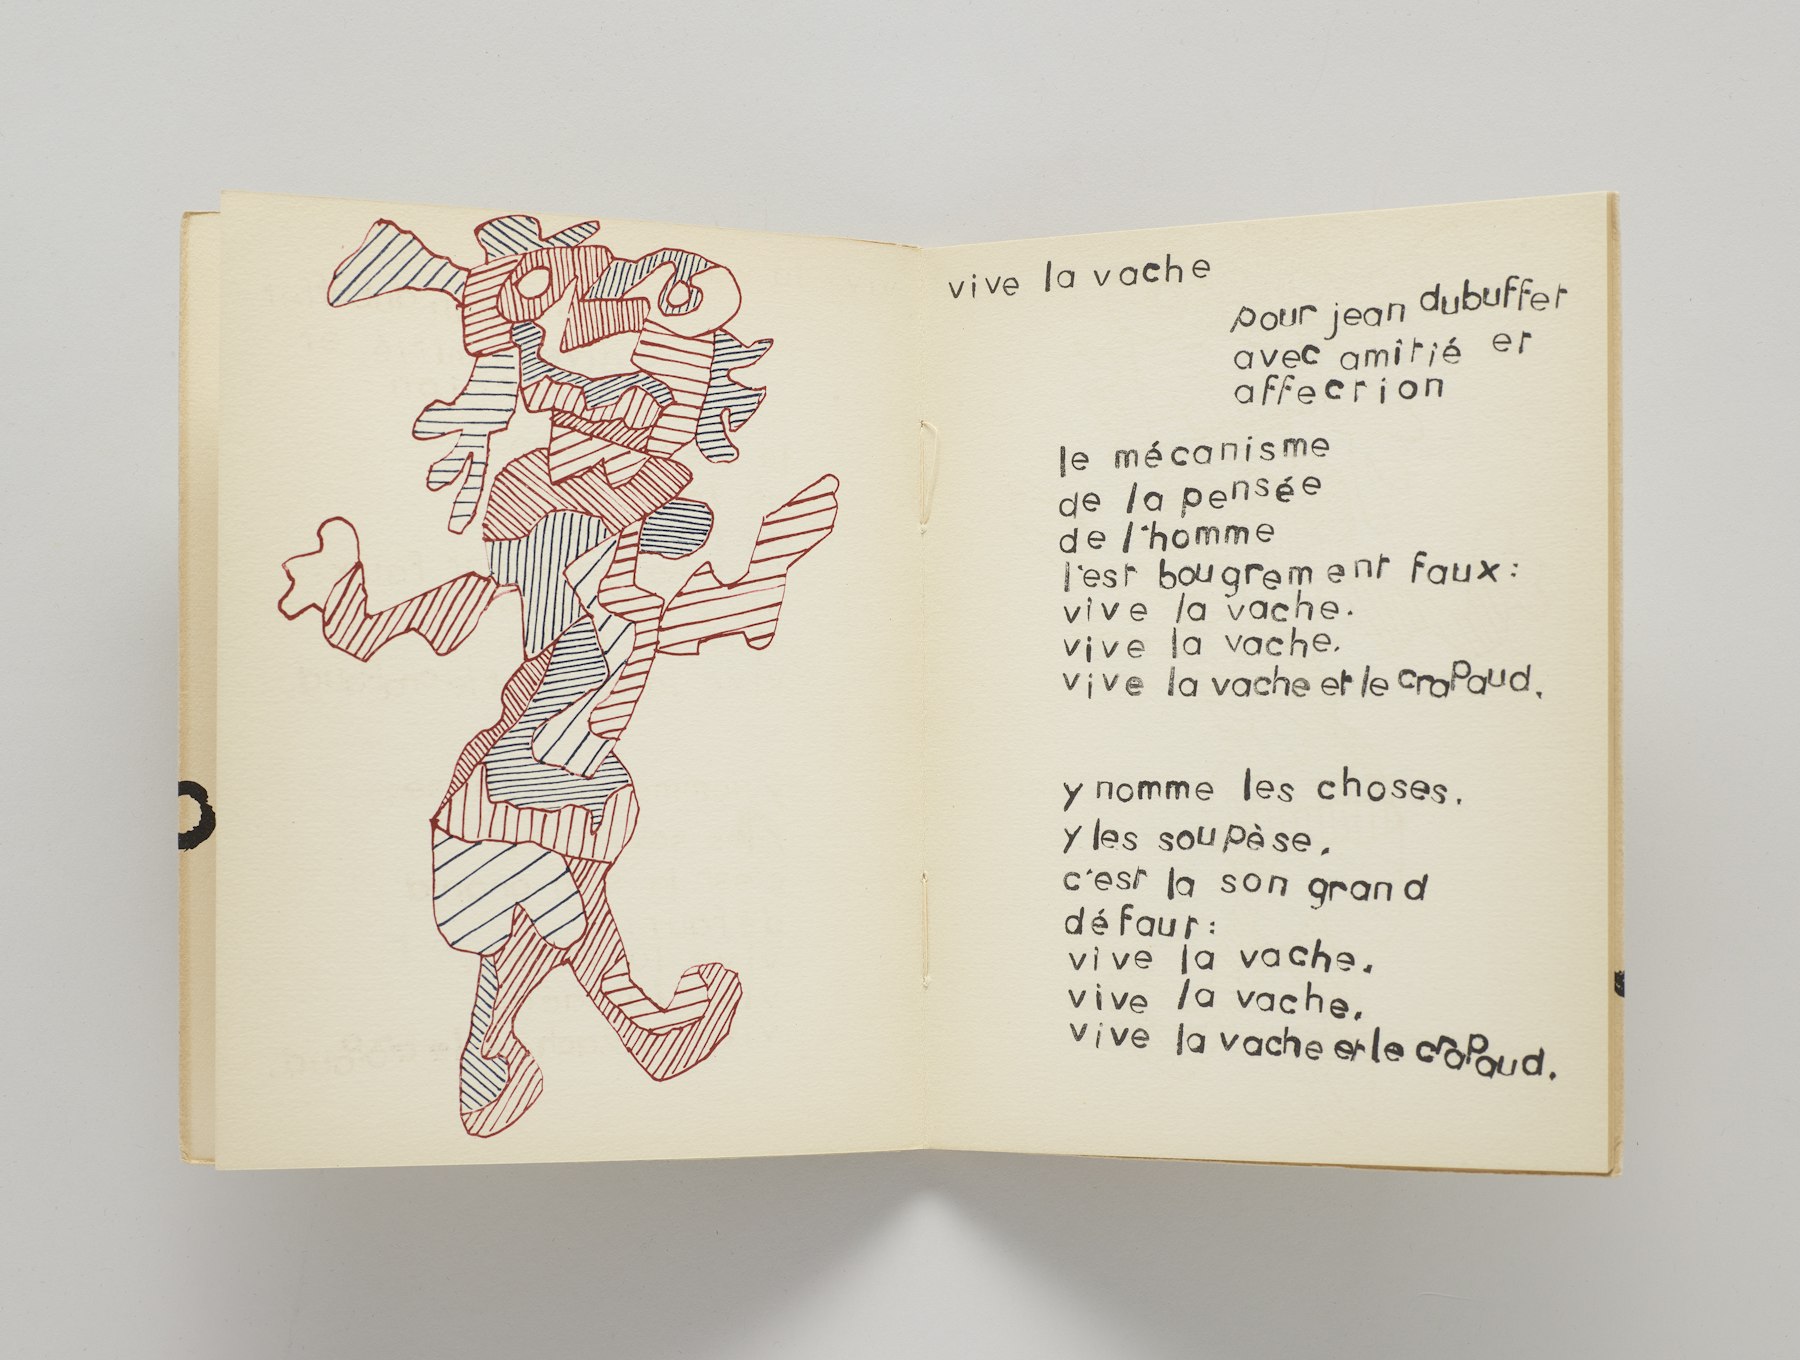 vive la vache
pour jean dubuffet
avec amîtié et
affection
le mécanisme
de la pensée
de l'homme
l'est bougrement faux:
vive la vache.
vive la vache.
vive la vache et le crapaud.
y nomme les choses.
y les soupèse.
c'est la son grand
défaut:
vive la vache.
vive la vache.
vive la vache et le crapaud.